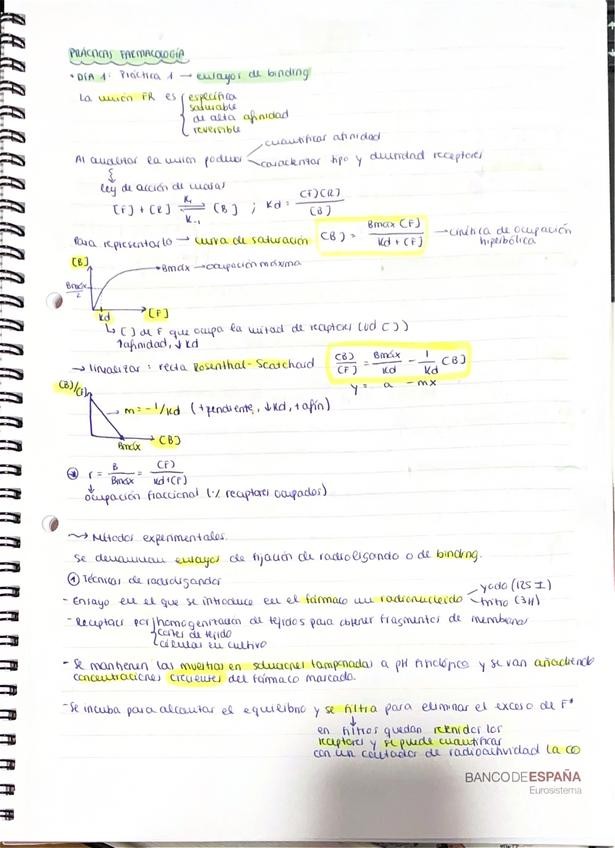 PRÁCTICAS FARMACOLOGÍA
• DÍA 1: Práctica 1 → ensayos de binding
La unión FR es { específica
saturable
de alta afinidad
reversible
cuantificar afinidad
Al analizar la unión podemos caracterizar tipo y densidad receptores
Ley de acción de masas
[F] + [R] ⇌ [B] ; Kd = [F][R] / [B]
K1
K-1
Para representarlo → curva de saturación [B] = Bmáx [F] / Kd + [F] → cinética de ocupación hiperbólica
[B]
Bmáx → ocupación máxima
Bmáx / 2
Kd [F]
↳ [] de F que ocupa la mitad de receptores (ud [])
↑afinidad, ↓Kd
→ linealizar: recta Rosenthal-Scatchard [B] / [F] = Bmáx / Kd - 1 / Kd [B]
y = a - mx
[B]/[F]
→ m = -1/Kd (+pendiente, ↓Kd, +afín)
Bmáx [B]
r = B / Bmáx = [F] / Kd+[F]
↓ ocupación fraccional (% receptores ocupados)
Métodos experimentales.
Se denominan ensayos de fijación de radioligando o de binding.
① Técnicas de radioligandos
- Ensayo en el que se introduce en el fármaco un radionucleido yodo (125 I)
tritio (3H)
- Receptores por homogenización de tejidos para obtener fragmentos de membranas
cortes de tejido
células en cultivo
- Se mantienen las muestras en soluciones tamponadas a pH fisiológico y se van añadiendo
concentraciones crecientes del fármaco marcado.
- Se incuba para alcanzar el equilibrio y se filtra para eliminar el exceso de F*
↓
en filtros quedan retenidos los
receptores y se puede cuantificar
con un contador de radioactividad la
BANCO DE ESPAÑA
Eurosistema